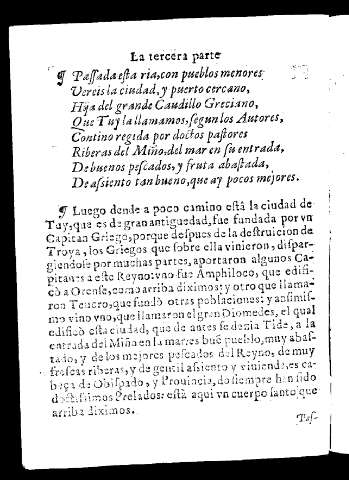 La tercera parte
¶ Passada esta ria, con pueblos menores
Vereis la ciudad, y puerto cercano,
Hija del grande Caudillo Greciano,
Que Tuy la llamamos, segun los Autores,
Contino regida por doctos pastores
Riberas del Miño, del mar en su entrada,
De buenos pescados, y fruta abastada,
De assiento tan bueno, que ay pocos mejores.
¶ Luego dende a poco camino està la ciudad de
Tuy, que es de gran antiguedad, fue fundada por vn
Capitan Griego, porque despues de la destruicion de
Troya, los Griegos que sobre ella vinieron, dispar-
giendose por muchas partes, aportaron algunos Ca-
pitanes a este Reyno: vno fue Amphiloco, que edifi-
cò a Orense, como arriba diximos: y otro que llama-
ron Teucro, que fundò otras poblaciones: y assimis-
mo vino vno, que llamaron el gran Diomedes, el qual
edificò esta ciudad, que de antes se dezia Tide, a la
entrada del Miño en la mar: es buē pueblo, muy abas-
tado, y de los mejores pescados del Reyno, de muy
frescas riberas, y de gentil assiento y viuienda: es ca-
beça de Obispado, y Prouincia, do siempre han sido
doctissimos Prelados: està aqui vn cuerpo santo que
arriba diximos.
Pas-